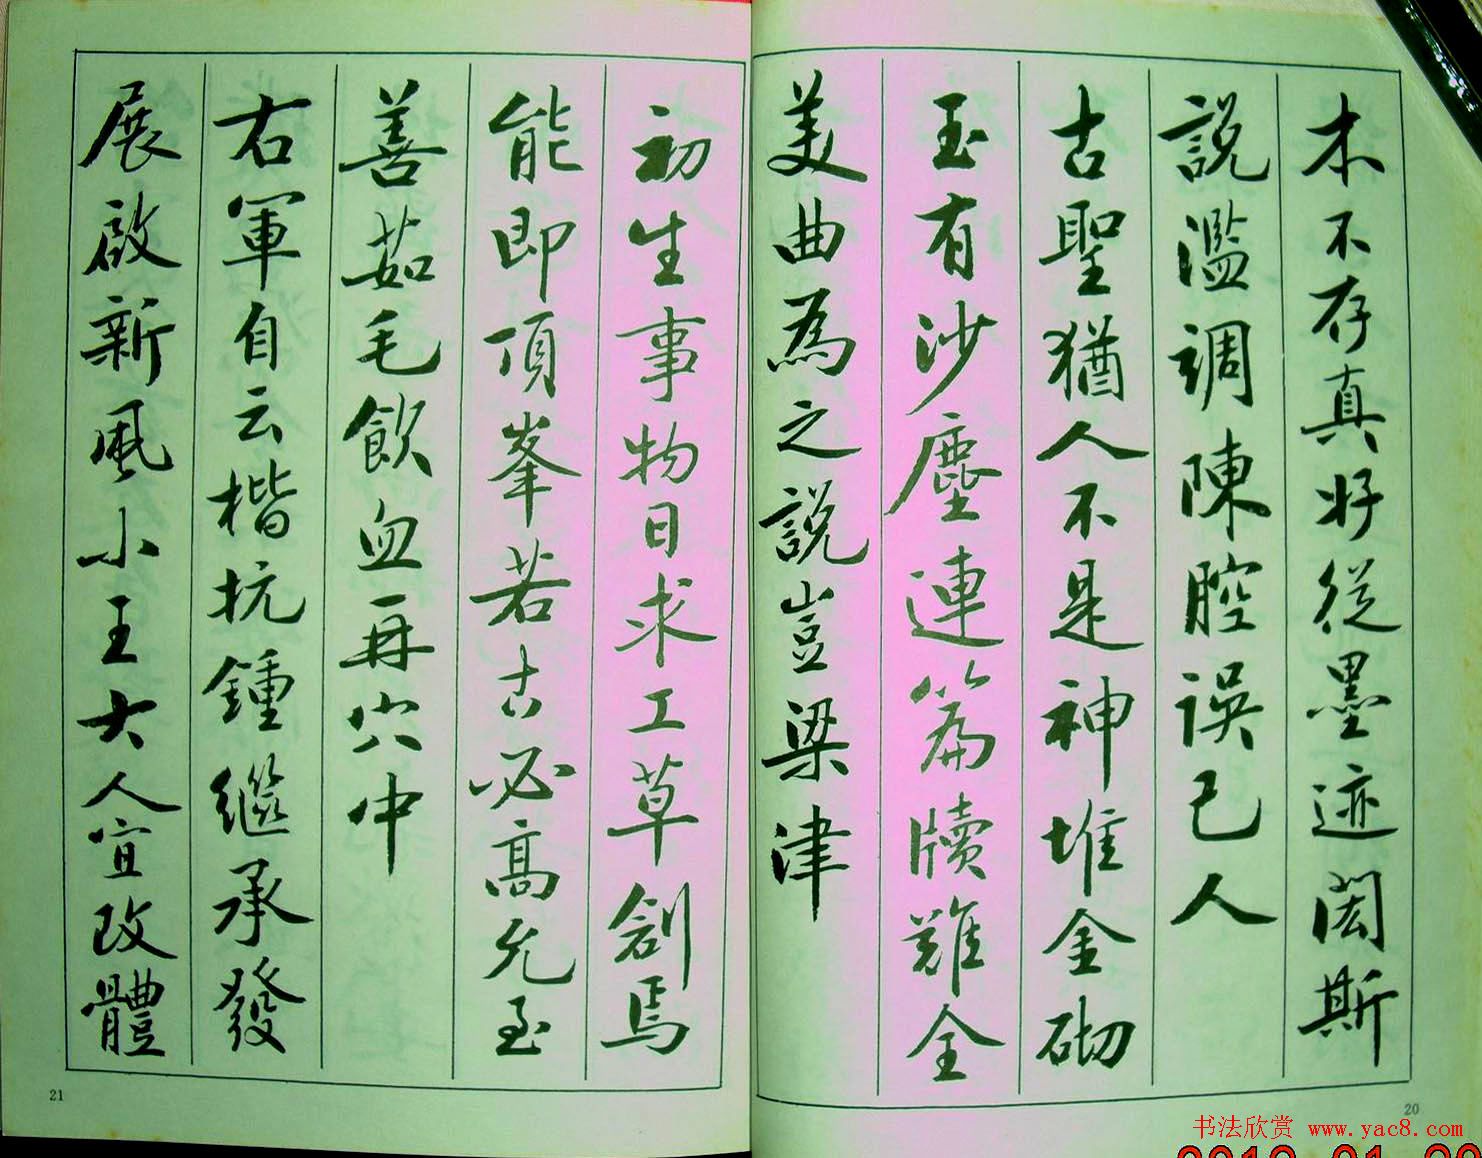 本不存真好從墨迹閎斯
説濫調陳腔誤己人
古聖猶人不是神堆金砌
玉有沙塵連篇牘難全
美曲為之説豈梁津
初生事物日求工草創焉
能即頂峯若古必高允至
善茹毛飲血再穴中
右軍自云楷抗鍾繼承發
展啟新風小王大人宜改體
21
20
书法欣赏 www.yac8.com